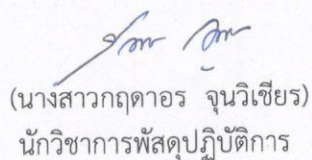 (นางสาวกฤดาอร จุนวิเชียร)
นักวิชาการพัสดุปฏิบัติการ